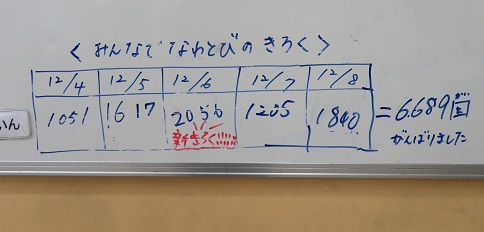 ＜みんなで なわとびの きろく＞
12/4 12/5 12/6 12/7 12/8
1051 1617 2056 1205 1840 ＝6.689回
新きろく!!!!! がんばりました